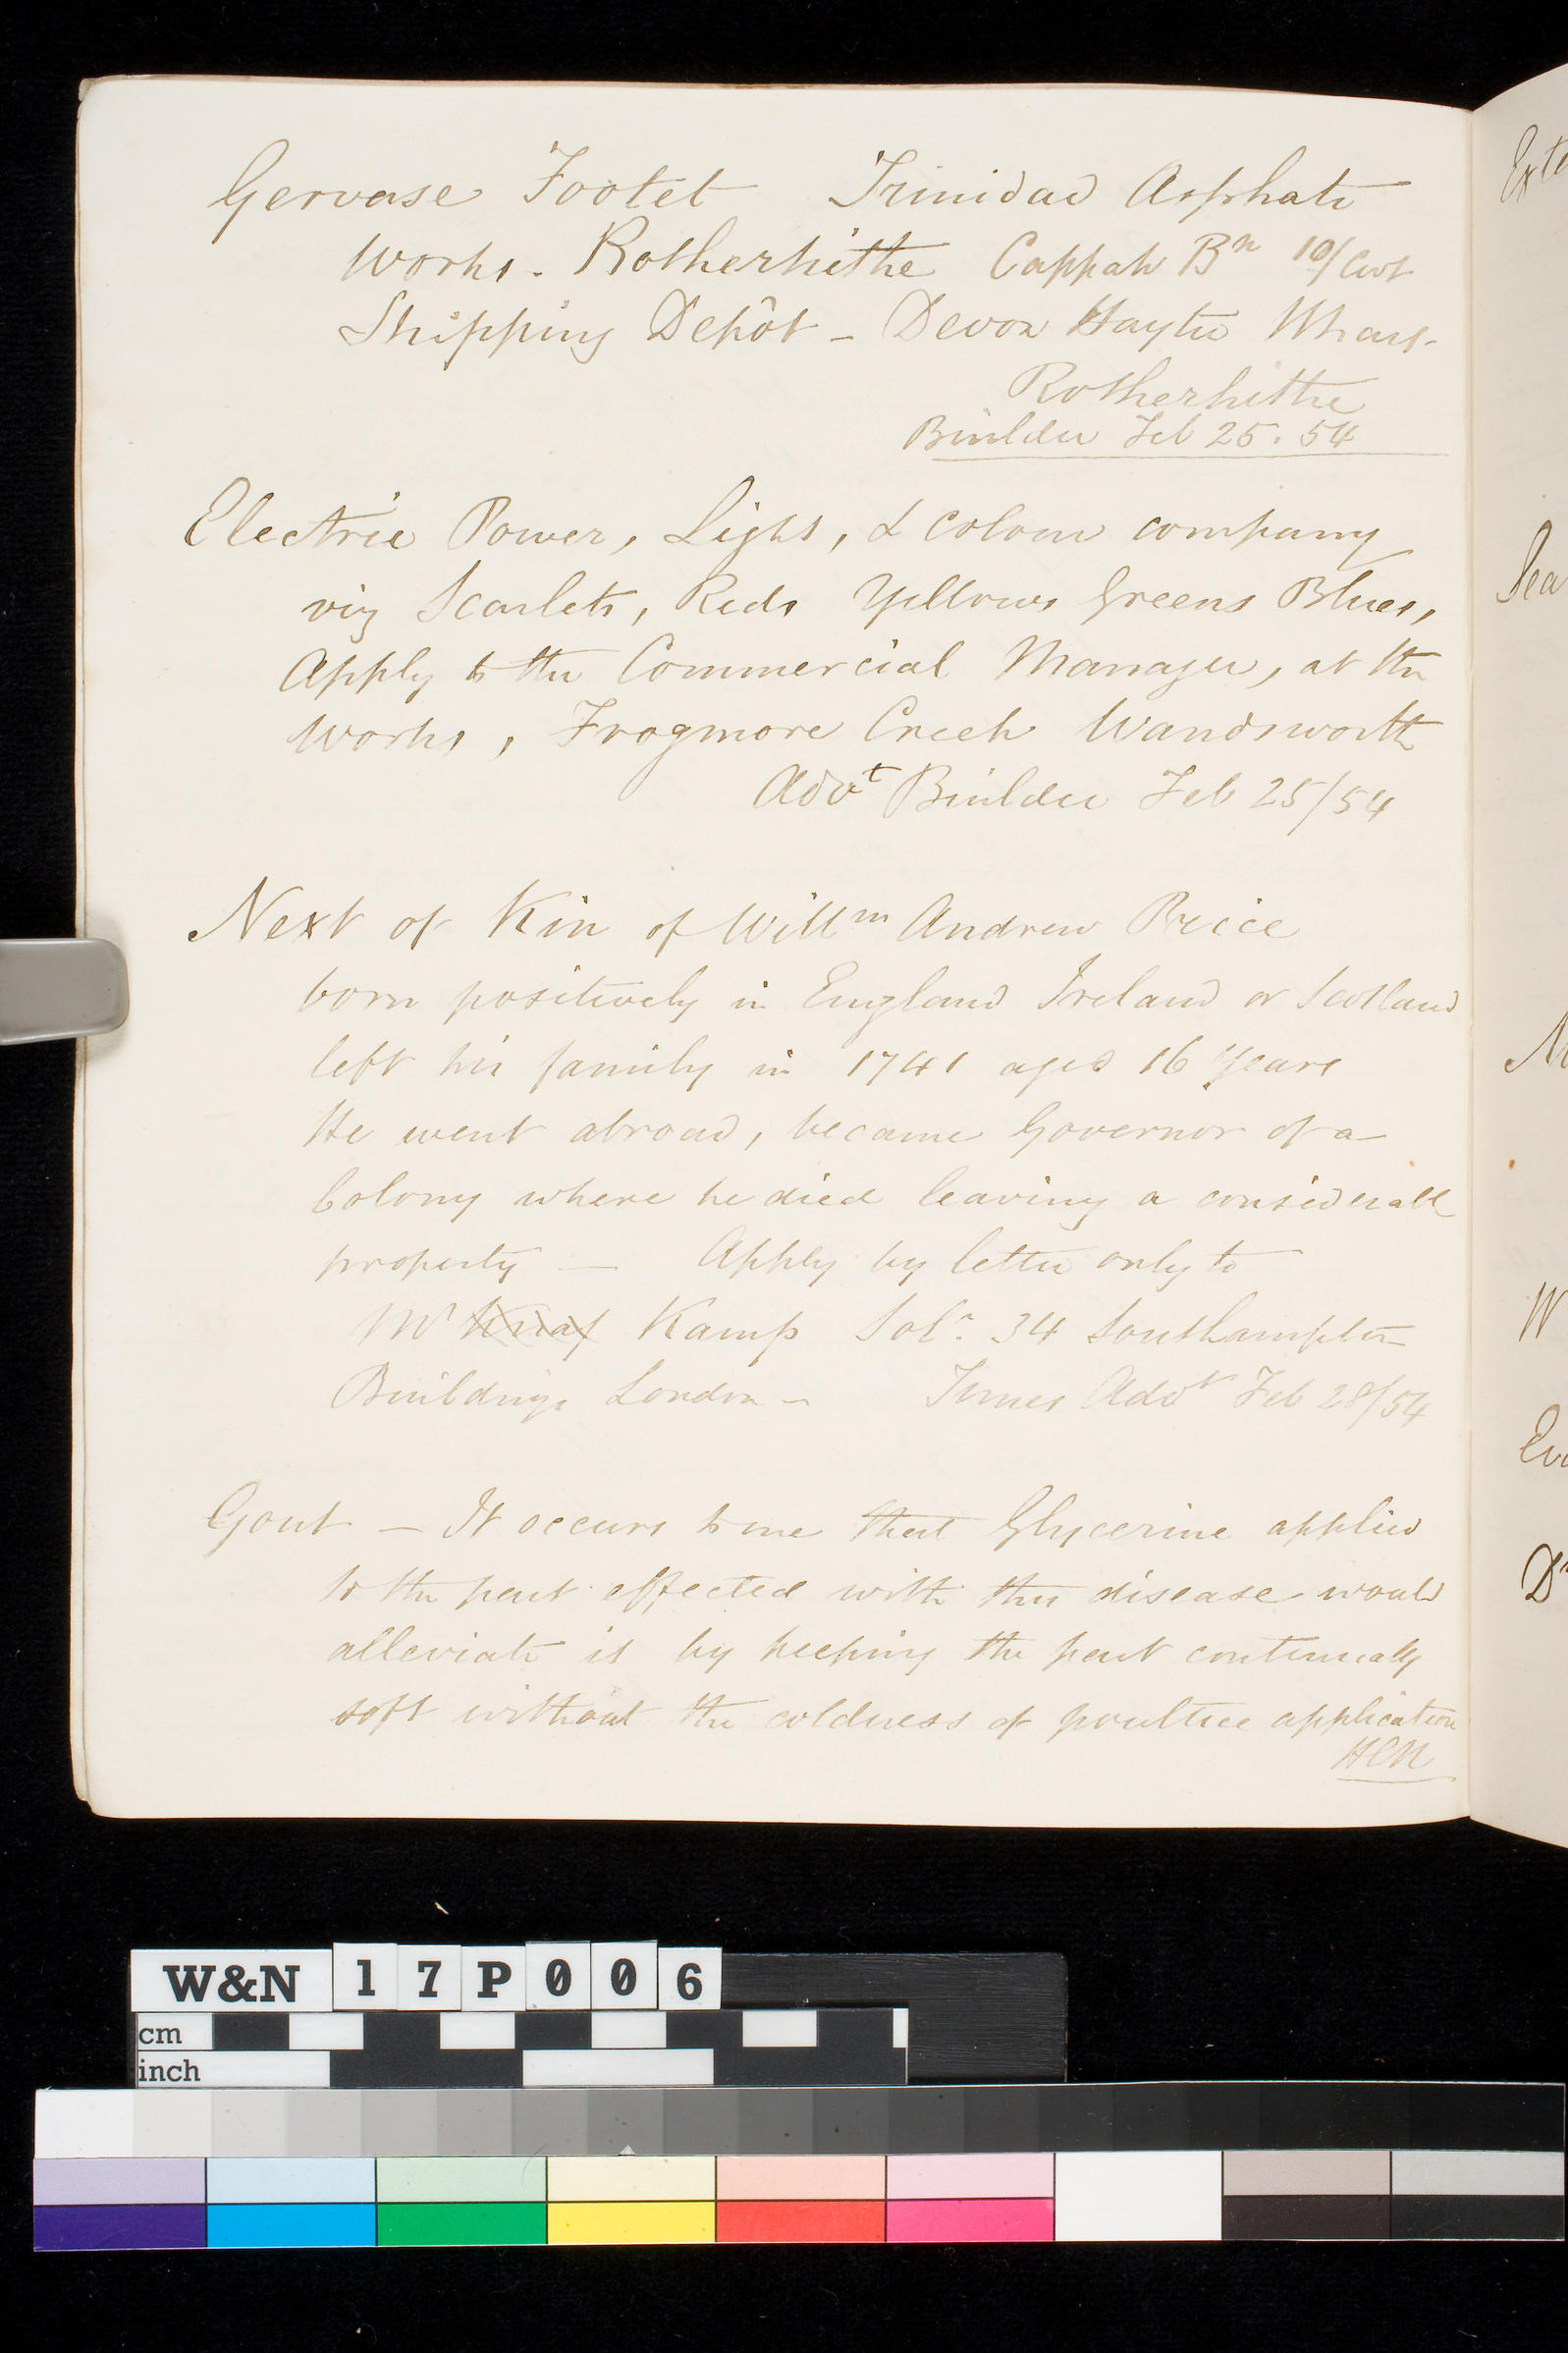 Gervase Footet Trinidad Asphalte
Works. Rotherhithe Cappah Bⁿ 10/Cwt
Shipping Depôt - Devon Hayter Wharf
Rotherhithe
Builder Feb 25. 54
Electric Power, Light, & Colour company
viz Scarlets, Reds Yellows Greens Blues,
Apply to the Commercial Manager, at the
Works, Frogmore Creek Wandsworth
Advᵗ Builder Feb 25/54
Next of Kin of Willᵐ Andrew Price
born positively in England Ireland or Scotland
left his family in 1741 aged 16 years
He went abroad, became Governor of a
Colony where he died leaving a considerable
property — Apply by letter only to
Mʳ Kamp Solʳ. 34 Southampton
Buildings London - Times Advᵗ Feb 28/54
Gout — It occurs to me that Glycerine applied
to the part effected with this disease would
alleviate it by keeping the part continually
soft without the coldness of poultice application
HCN
W&N 17P006
cm
inch
Exte
Sea
W
Dʳ